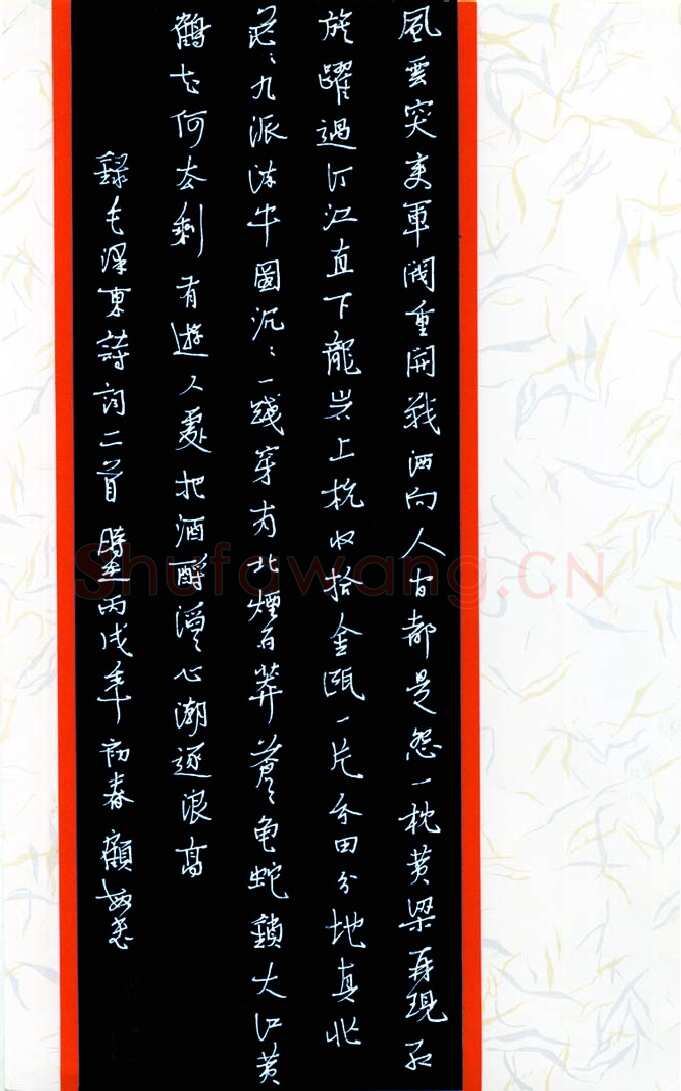 風雲突变軍閥重開戰洒向人间都是怨一枕黄粱再現红
旗躍過汀江直下龍岩上杭收拾金瓯一片分田分地真忙
茫〻九派流中國沉〻一綫穿南北煙雨莽蒼〻龜蛇鎖大江黄
鶴知何去剩有遊人處把酒酹滔〻心潮逐浪高
錄毛澤東詩詞二首 時在丙戌年初春 顧
Shufawang.CN